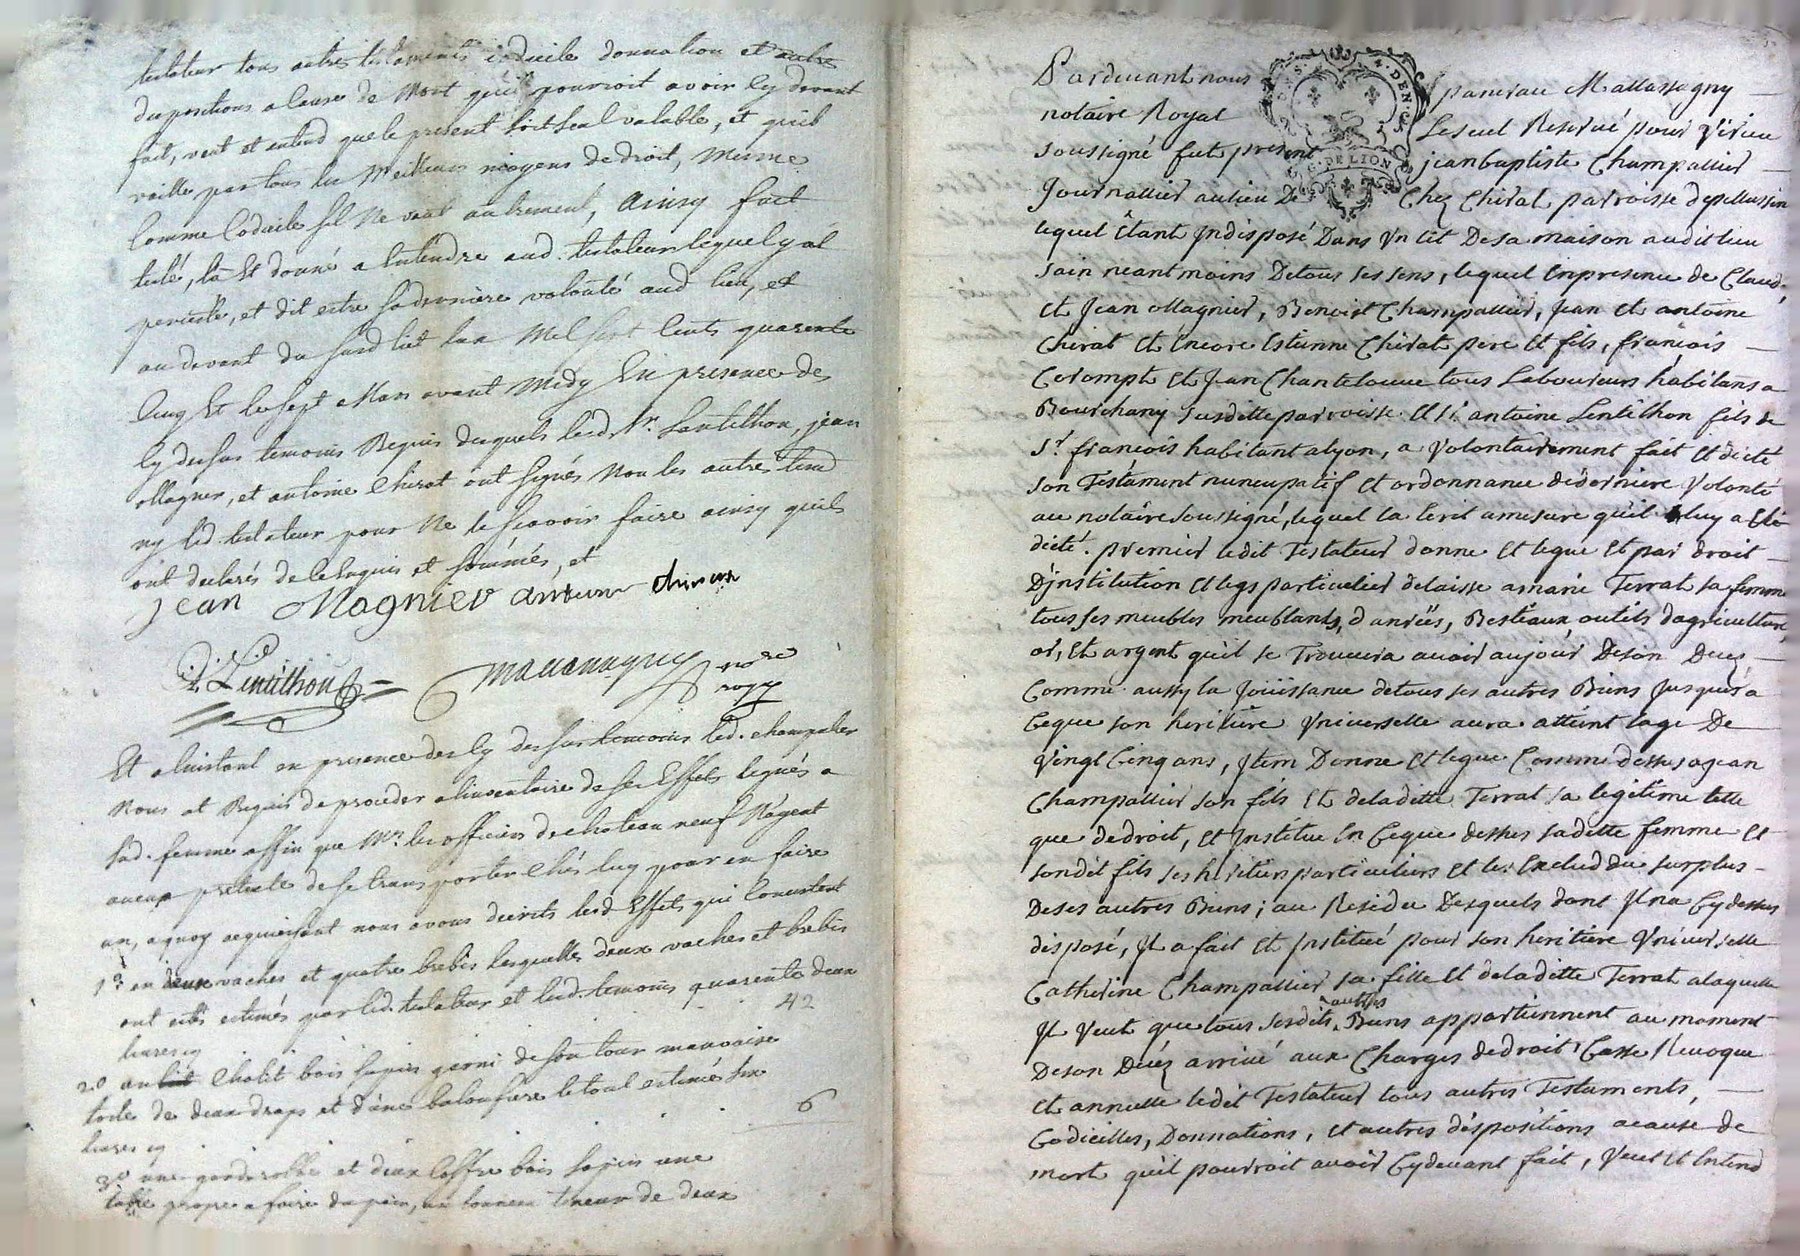 testateur tous autres testaments codicile donnation et autres
dispositions a cause de mort qu'il pourroit avoir cy devant
fait, veut et entend que le present soit seul valable, et qu'il
vaille par tous les meilleurs moyens de droit, mesme
comme codicile s'il ne vaut autrement, ainsy fait
leü, et donné a entendre aud. testateur lequel y a
persisté, et dit estre sa derniere volonté aud lieu, et
au devant du susd lit l'an mil sept cents quarente
cinq et le sept mars avant midy En presence des
cy dessus temoins Requis desquels led. Sr. Lentilhon, jean
Magnier, et antoine Chirat ont signés non les autres temd
ny led. testateur pour ne le sçavoir faire ainsy qu'ils
ont declarés de ce enquis et sommés, et
jean Magnier antoine chirat
Lentilhon Mattassagny nore
royx
Et a l'instant en presence des cy dessus temoins led. champalier
nous at Requis de proceder a linventaire de ses Effets legués a
sad. femme affin que Mrs. les officiers de chateau neuf n'ayent
aucun pretexte de se transporter chés luy pour en faire
un, a quoy acquiesant nous avons decrits lesd Effets qui consistent
1° en deux vaches et quatre brebis lesquelles deux vaches et brebis
ont estés estimés par led. testateur et lesd. temoins quarente deux
livres cy 42
2° un chalit bois sapin garni de son tour mauvaise
toile de deux draps et d'une le tout estimé six
livres cy 6
3° une garderobbe et deux coffre bois sapin une
table propre a faire du pain, un tonneau teneur de deux
Pardevant nous pancrau Mattassagny
notaire Royal Le seul Reservé pour Virieu
soussigné fut present jean baptiste Champallier
Journallier au lieu De Chez Chirat parroisse depellussin
lequel Êtant Indisposé Dans Un lit De sa maison audit lieu
sain neantmoins De tous ses sens, lequel En presence de Claude,
et Jean Magnier, Benoist Champallier, Jean Et antoine
Chirat Et Encore Estienne Chirat pere et fils, françois
Corompt et Jean Chantelouve tous Laboureurs habitans a
Bourchany susditte parroisse. Et Sr. antoine Lentilhon fils de
Sr. françois habitant a lyon, a Volontairement fait Et dicté
son Testament nuncupatif Et ordonnance de derniere Volonté
au notaire soussigné, lequel la Ecrit a mesure qu'il luy a Eté
dicté. premier ledit Testateur donne Et legue Et par droit
D'institution Et legs particulier delaisse a marie Terrat sa femme
tous ses meubles meublants, danrëes, Bestiaux, outils d'agriculture,
or, Et argent qu'il se Trouvera avoir au jour De son Decez,
Comme aussy la Joüissance de tous ses autres Biens Jusques a
Ceque son heritiere Universelle aura atteint l'age De
Vingt Cinq ans, Item Donne et legue Comme dessus a jean
Champallier son fils Et de laditte Terrat sa legitime telle
que de droit, et Institue En Ceque dessus saditte femme Et
sondit fils ses heritiers particuliers Et les Exclud du surplus
De ses autres Biens; au Residu Desquels dont Il na Cy dessus
disposé, Il a fait Et Institué pour son heritiere Universelle
Catherine Champallier sa fille Et de laditte Terrat a laquelle
Il Veut que tous sesdits autres Biens appartiennent au moment
De son Decéz arrivé aux Charges de droit; Casse Revoque
Et annulle ledit Testateur tous autres Testaments,
Codicilles, Donnations, Et autres dispositions a cause de
mort qu'il pourroit avoir Cy devant fait, Veut et Entend
G. DE LION